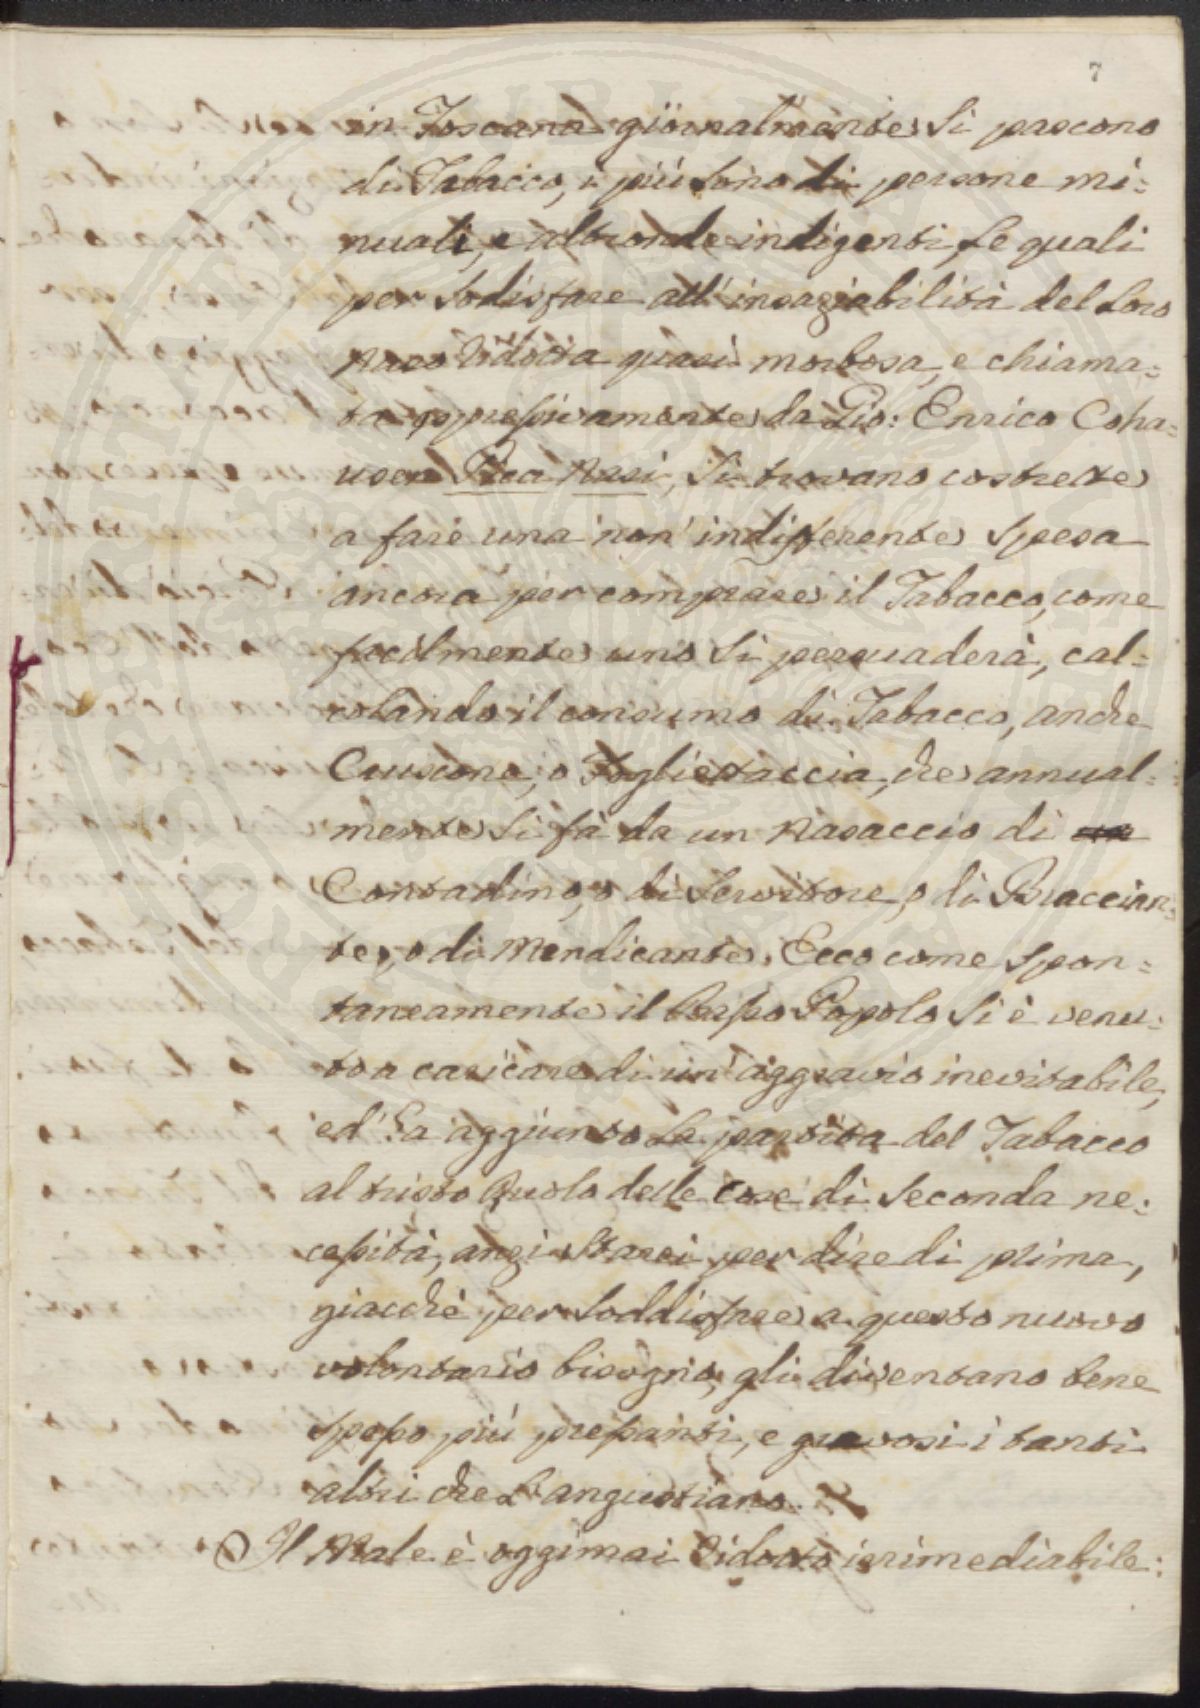 7
in Toscana giornalmente si pascono
di Tabacco, i più sono di persone mi=
nuali, e altronde indigenti, le quali
per sodisfare all'insaziabilità del loro
Naso ridotta quasi morbosa, e chiama=
ta espressivamente da Gio: Enrico Coha=
usen Pica Nasi, si trovano costrette
a fare una non indifferente spesa
ancora per comprare il Tabacco, come
facilmente uno si persuaderà, cal=
colando il consumo di Tabacco, anche
Cruscone, o Fogliettaccia, che annual=
mente si fà da un Nasaccio di
Contadino, o di Servitore, o di Braccian=
te, o di Mendicante. Ecco come spon=
taneamente il Basso Popolo si è venu=
to a caricare di un aggravio inevitabile,
ed ha aggiunto la partita del Tabacco
al tristo Ruolo delle cose di seconda ne=
cessità, anzi starei per dire di prima,
giacchè per soddisfare a questo nuovo
volontario bisogno, gli diventano bene
spesso più pressanti, e gravosi i tanti
altri che l'angustiano.
Il Male è oggimai ridotto irimediabile: